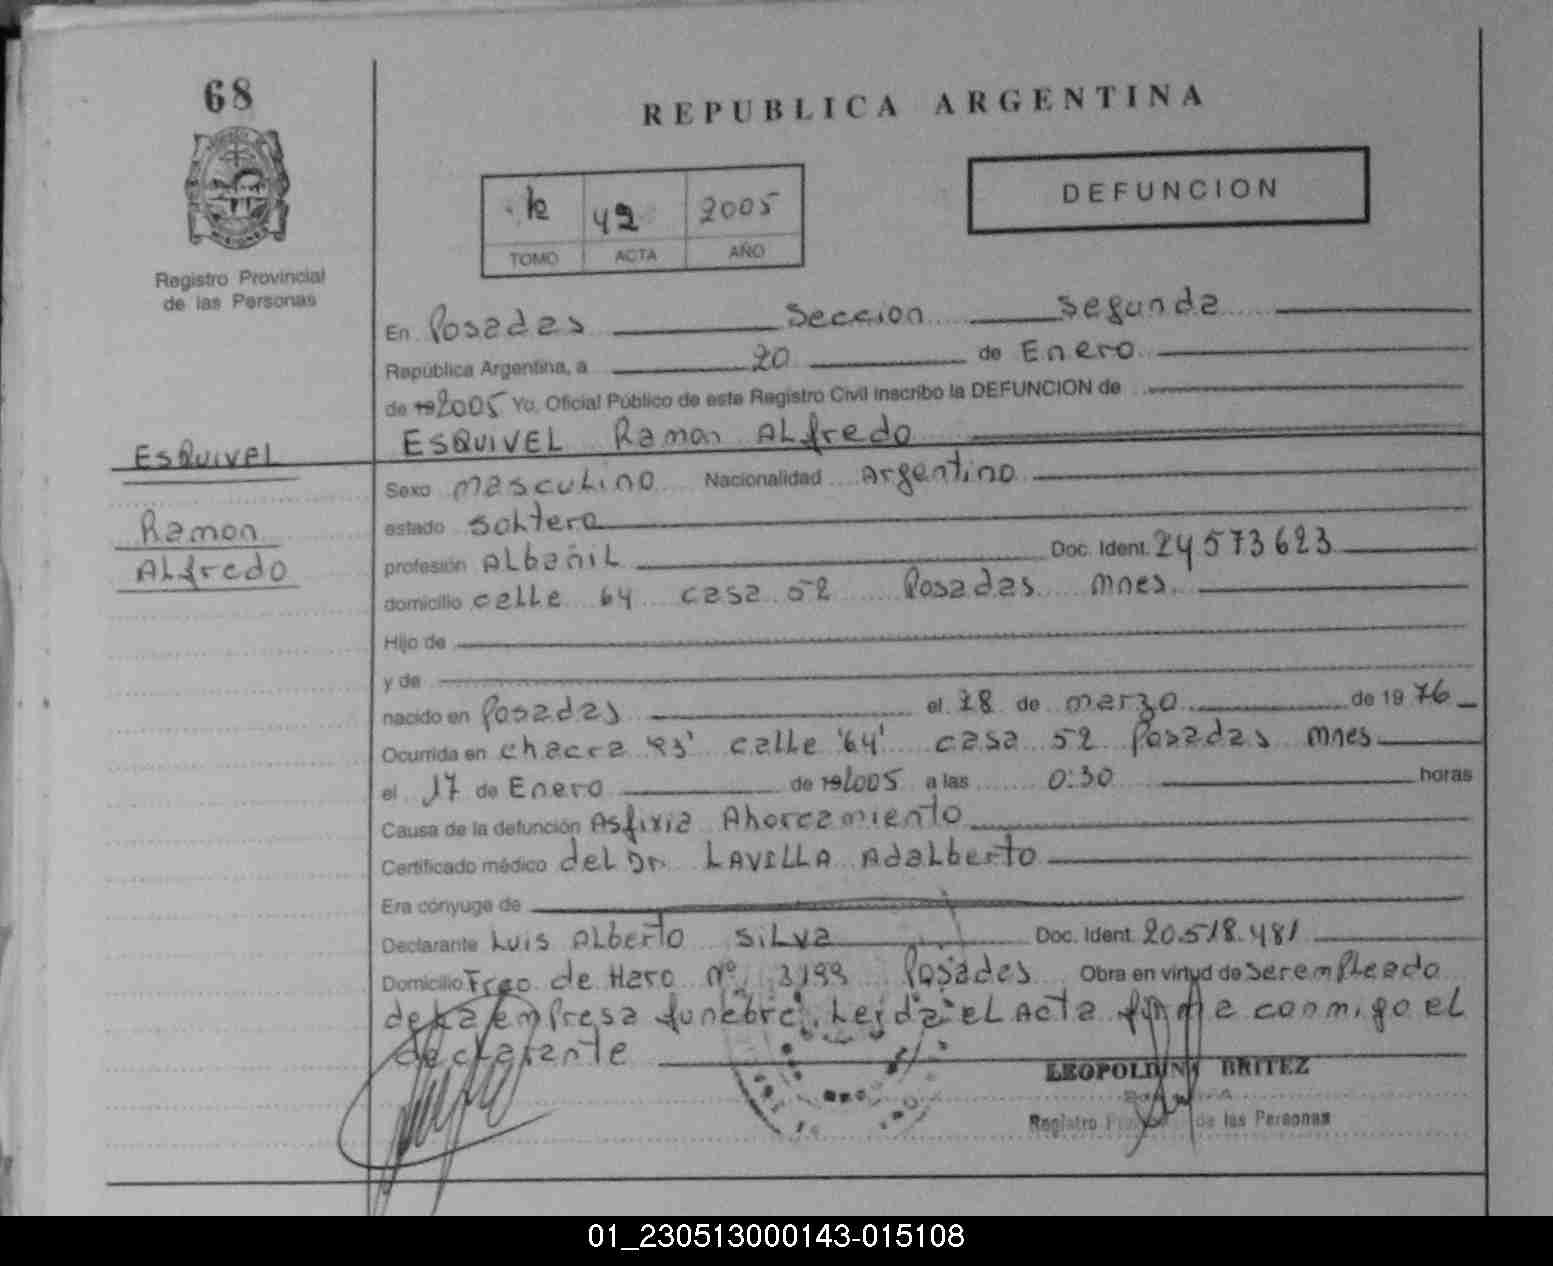 68
REPUBLICA ARGENTINA
42 2005
DEFUNCION
TOMO ACTA AÑO
Registro Provincial
de las Personas
En Posadas Seccion Segunda
República Argentina, a 20 de Enero
de 19 2005 Yo, Oficial Público de este Registro Civil inscribo la DEFUNCION de
ESQUIVEL Ramon ALfredo
ESQUIVEL
Ramon
ALfredo
Sexo masculino Nacionalidad Argentino
estado Soltero
profesión ALbañiL Doc. Ident. 24573623
domicilio calle 64 casa 52 Posadas mnes.
Hijo de
y de
nacido en Posadas el 28 de marzo de 19 76
Ocurrida en chacra calle '64' casa 52 Posadas mnes
el 17 de Enero de 19 2005 a las 0:30 horas
Causa de la defunción Asfixia Ahorcamiento
Certificado médico del Dr. LAVILLA Adalberto
Era cónyuge de
Declarante Luis ALberto SiLva Doc. Ident. 20.518.481
Domicilio Fco de Haro Nº Posadas Obra en virtud de ser empleado
de La empresa funebre. Leida eL Acta firma conmigo el
declarante
LEOPOLDINA BRITEZ
Registro de las Personas
01_230513000143-015108